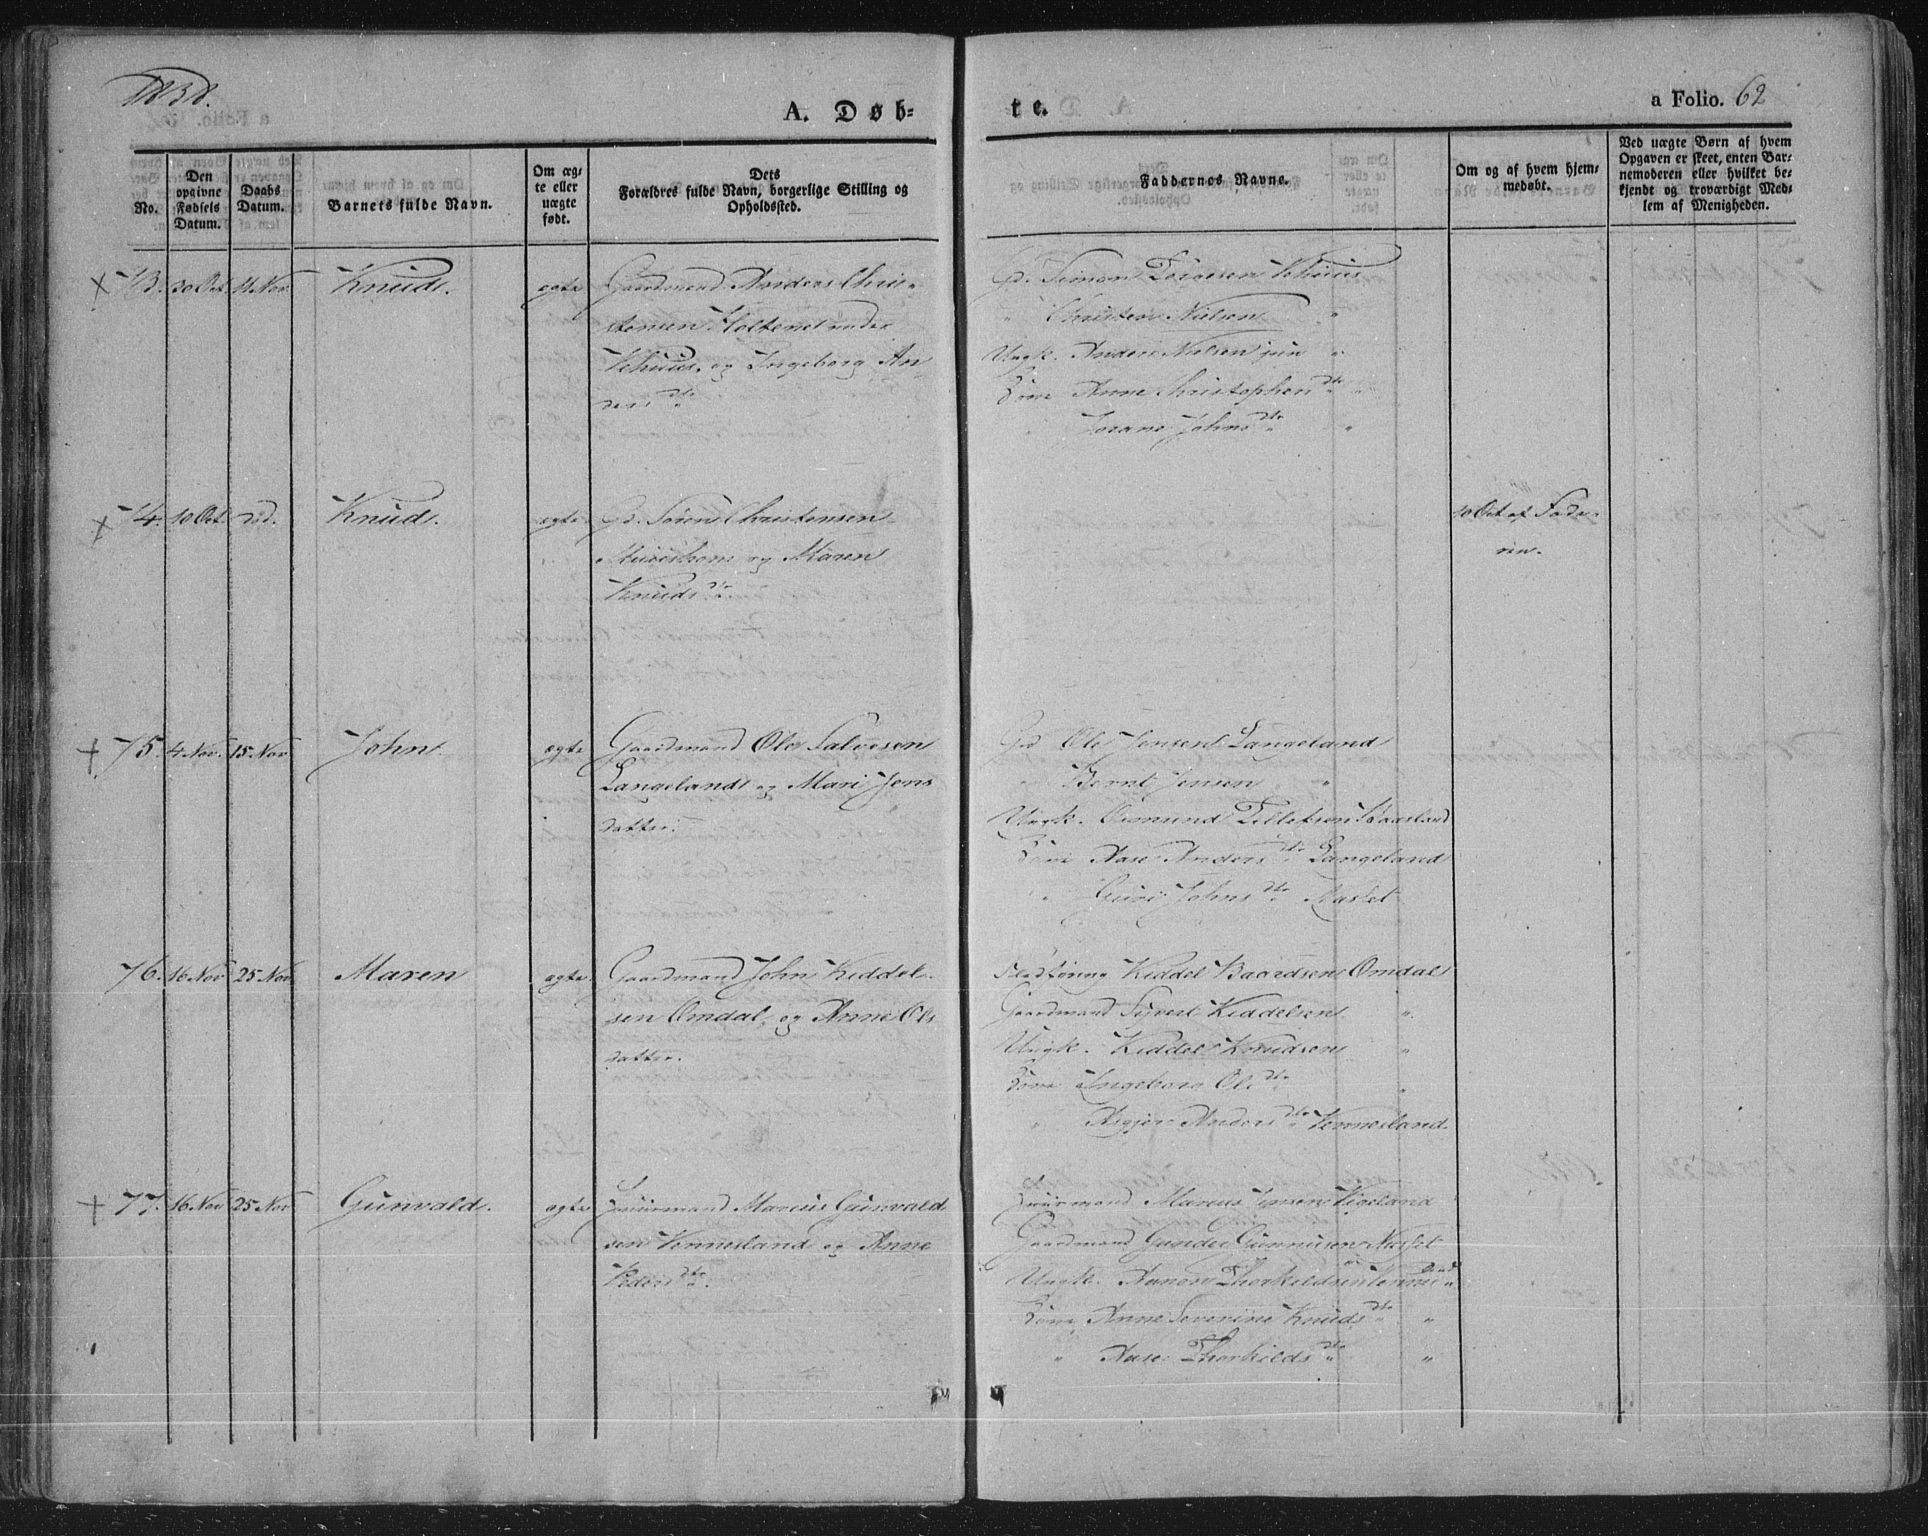 1838.
A. Døb-
te.
a Folio. 62
No.
Den opgivne Fødsels Datum.
Daabs Datum.
Barnets fulde Navn.
Om ægte eller uægte født.
Dets Forældres fulde Navn, borgerlige Stilling og Opholdssted.
Faddernes Navne.
Om og af hvem hjemmedøbt.
Ved uægte Børn af hvem Opgaven er skeet, enten Barnemoderen eller hvilket bekjendt og troværdigt Medlem af Menigheden.
73. 30 Oct. 11 Nov. Knud. ægte Gaardmand Anders Chri-
stensen Holtenet under
Vehuus, og Ingeborg An
ders dtr
Gd. Simon Vehuus
" Christen Nielsen "
Ungk. Anders Nielsen jun "
Kone Anne Christophers dtr "
" Johns dtr "
74. 10 Oct. død. Knud. ægte Gd. Søren Christensen
og Maren
Knuds dtr.
10 Oct af Fade-
ren.
75. 4 Nov. 15 Nov John. ægte Gaardmand Ole Salvesen
Langeland og Mari Jens
datter.
Gd Ole Jensen Langeland
" Bernt Jensen "
Ungk. Osmund Tellefsen
Kone Aase Anders dtr Langeland
" Guri Johns dtr
76. 16 Nov 25 Nov. Maren ægte Gaardmand John Kiddel
sen Omdal, og Anne Ols
datter.
Kiddel Baardsen Omdal
Gaardmand Syvert Kiddelsen "
Ungk. Kiddel Knudsen "
Kone Ingeborg Ols dtr "
" Asgjer Anders dtr Vennesland.
77. 16 Nov 25 Nov Gunvald. ægte Huusmand Marcus Gunvald
sen Vennesland og Anne
Peders dtr.
Huusmand Marcus Jensen Vigeland
Gaardmand Gunder Gunnusen
Ungk. Aanon Thorkildsen Vennesland
Kone Anne Severine Knuds dtr "
" Aase Thorkilds dtr "